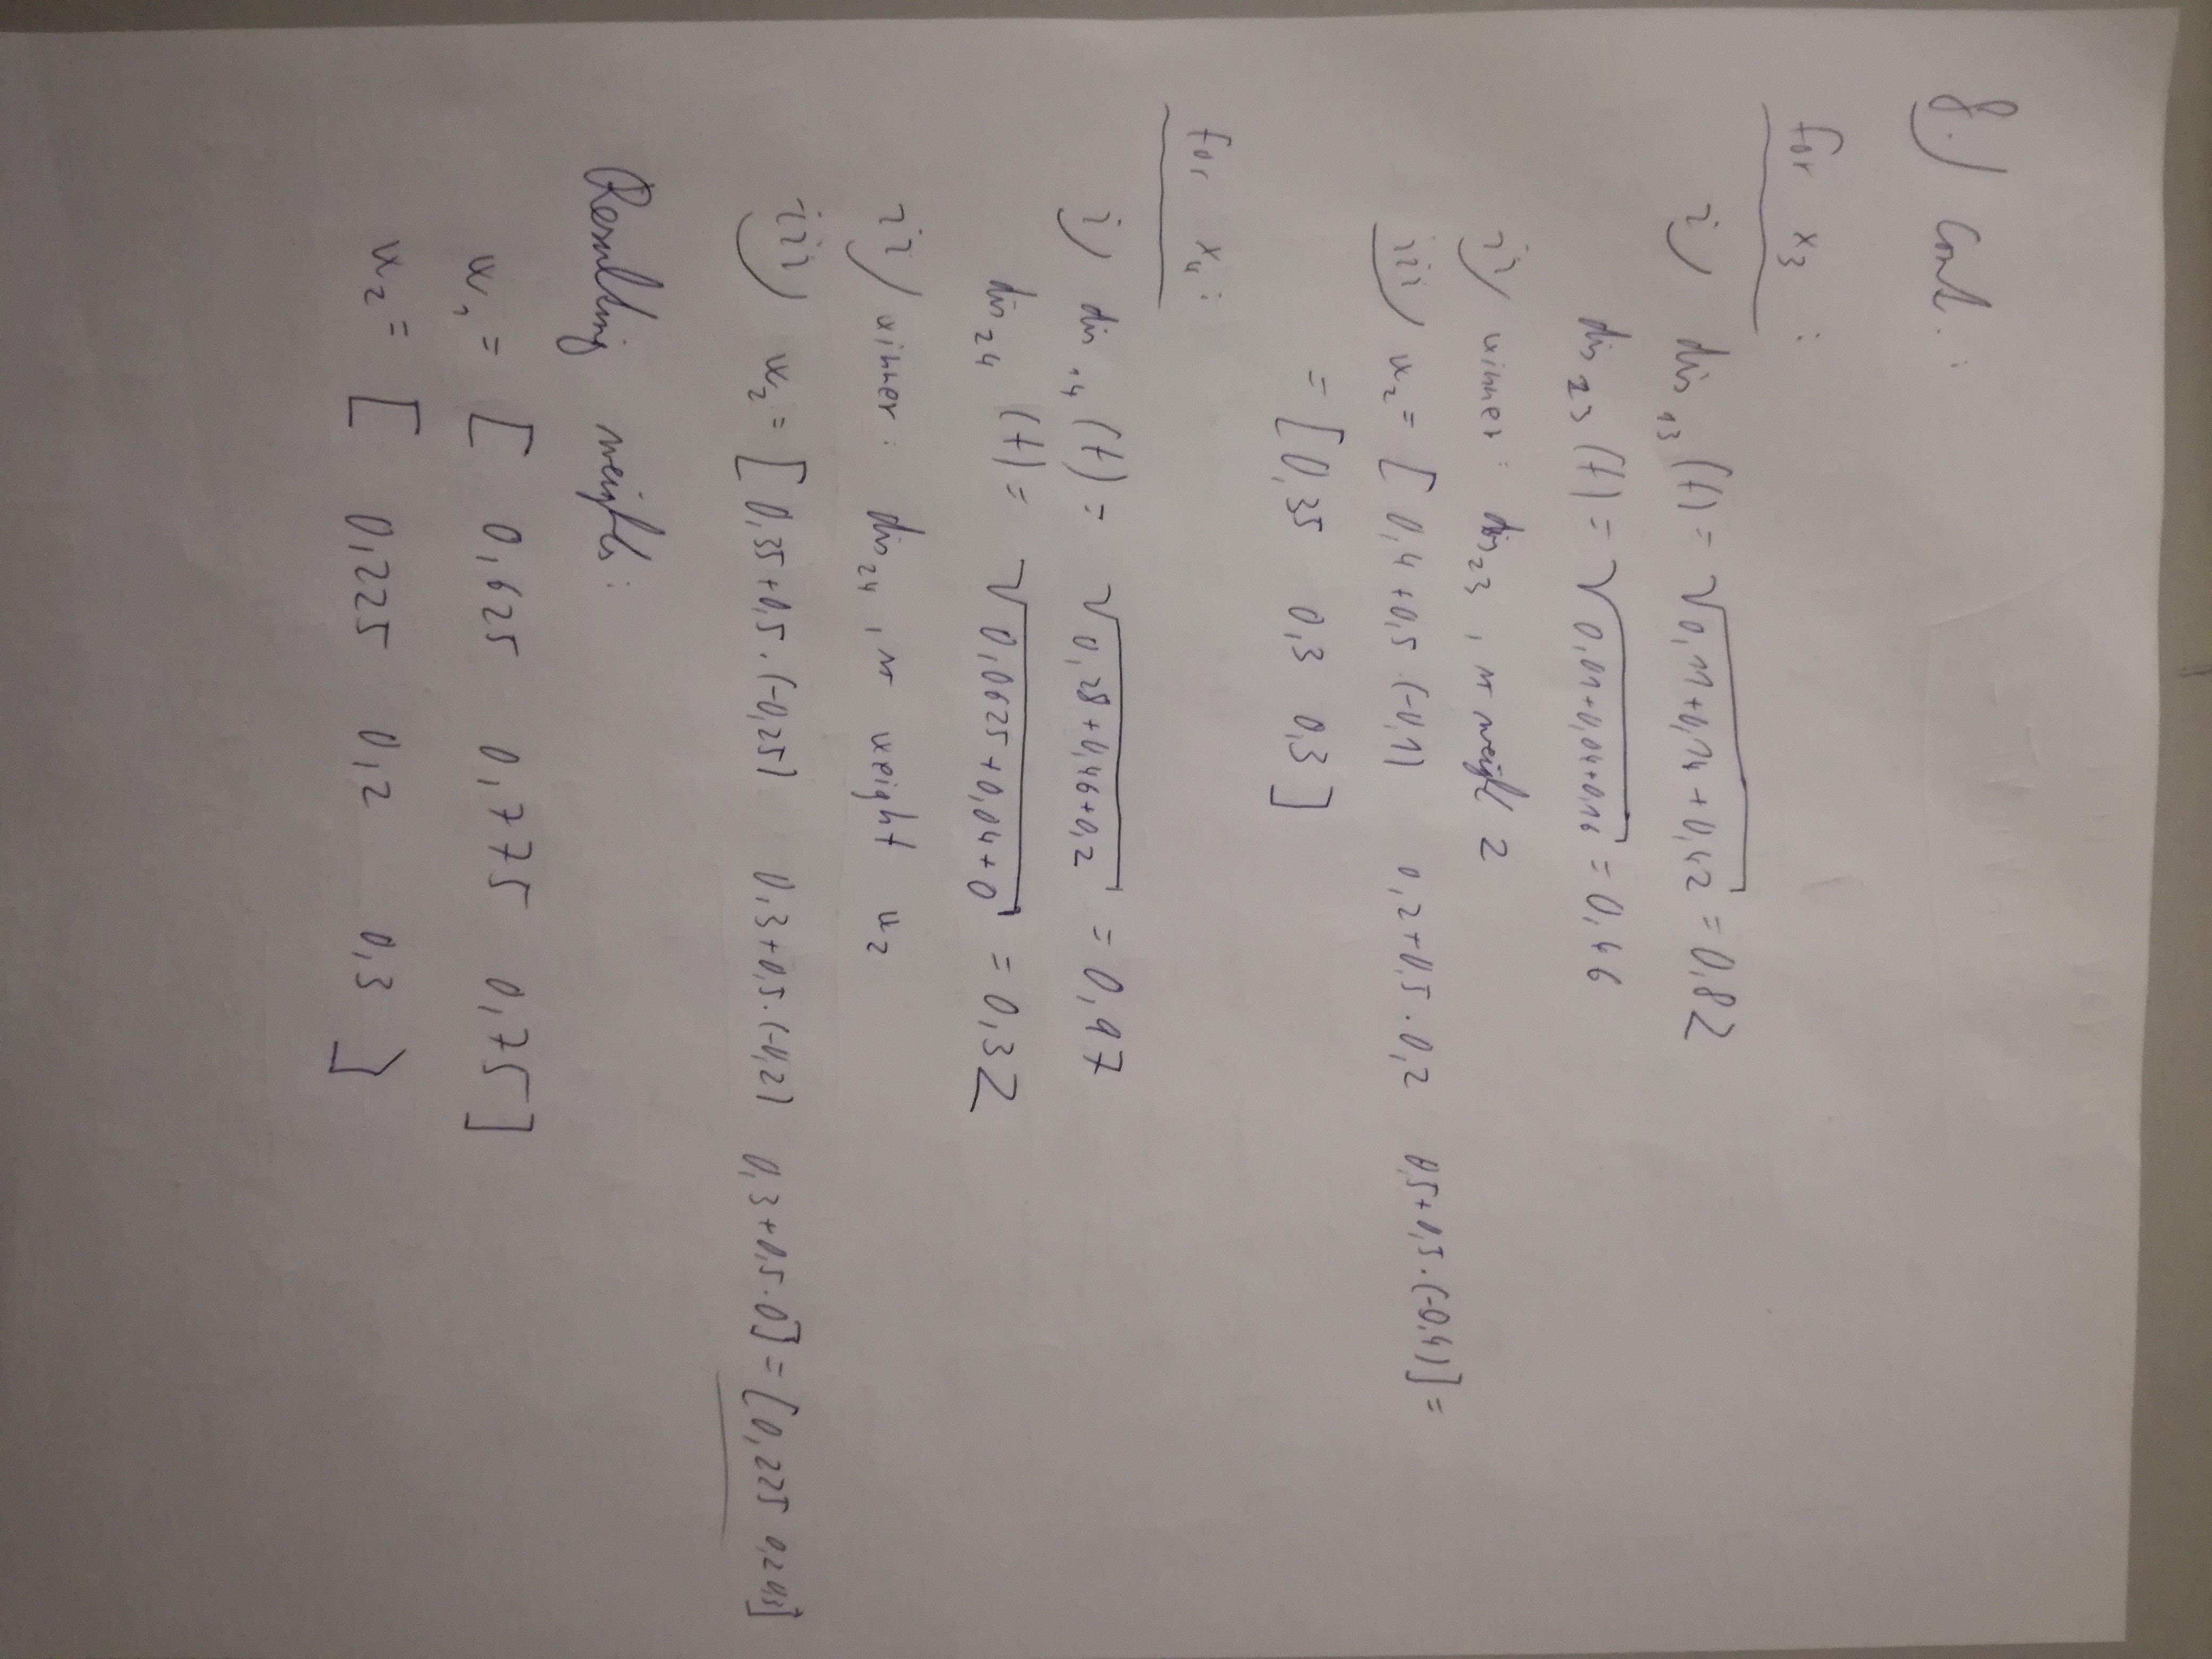 8.) cont.:
for x₃ :
i) dis₁₃(t) = √(0,11+0,14+0,42) = 0,82
dis₂₃(t) = √(0,01+0,04+0,16) = 0,46
ii) winner: dis₂₃, weight 2
iii) w₂ = [ 0,4+0,5·(-0,1) 0,2+0,5·0,2 0,5+0,5·(-0,4)] =
= [0,35 0,3 0,3]
for x₄:
i) dis₁₄(t) = √(0,28+0,46+0,2) = 0,97
dis₂₄(t) = √(0,0625+0,04+0) = 0,32
ii) winner: dis₂₄, weight w₂
iii) w₂ = [0,35+0,5·(-0,25) 0,3+0,5·(-0,2) 0,3+0,5·0] = [0,225 0,2 0,3]
Resulting weights:
w₁ = [ 0,625 0,775 0,75]
w₂ = [ 0,225 0,2 0,3 ]